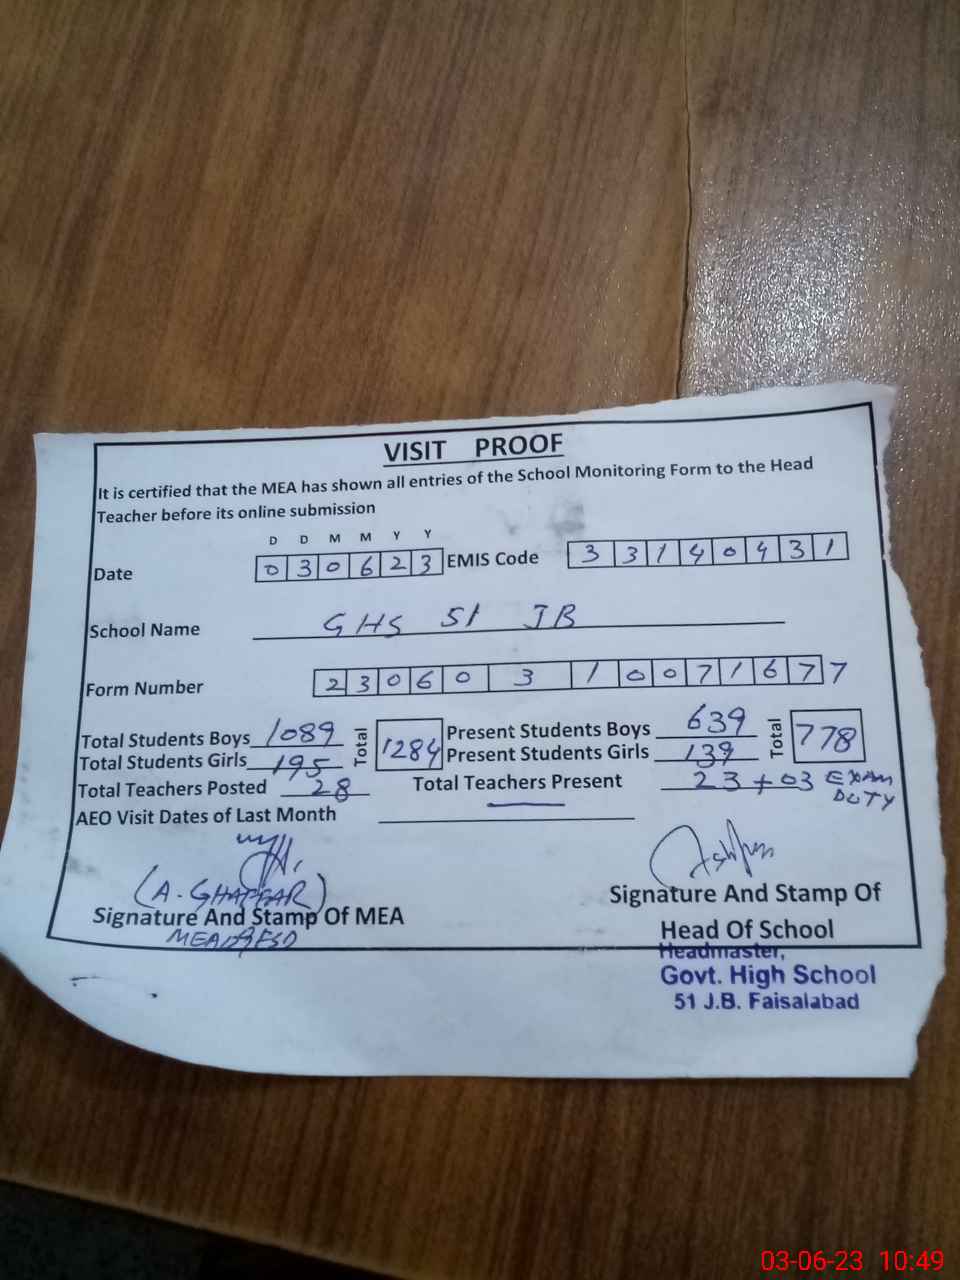 VISIT PROOF
It is certified that the MEA has shown all entries of the School Monitoring Form to the Head
Teacher before its online submission
D D M M Y Y
Date 0 3 0 6 2 3 EMIS Code 3 3 1 4 0 4 3 1
School Name GHS 51 JB
Form Number 2 3 0 6 0 3 1 0 0 7 1 6 7 7
Total Students Boys 1089 Total 1284 Present Students Boys 639 Total 778
Total Students Girls 195 Present Students Girls 139
Total Teachers Posted 28 Total Teachers Present 23 + 03 EXAM DUTY
AEO Visit Dates of Last Month
(A. GHAFFAR)
Signature And Stamp Of MEA
Signature And Stamp Of
Head Of School
Headmaster,
Govt. High School
51 J.B. Faisalabad
03-06-23 10:49